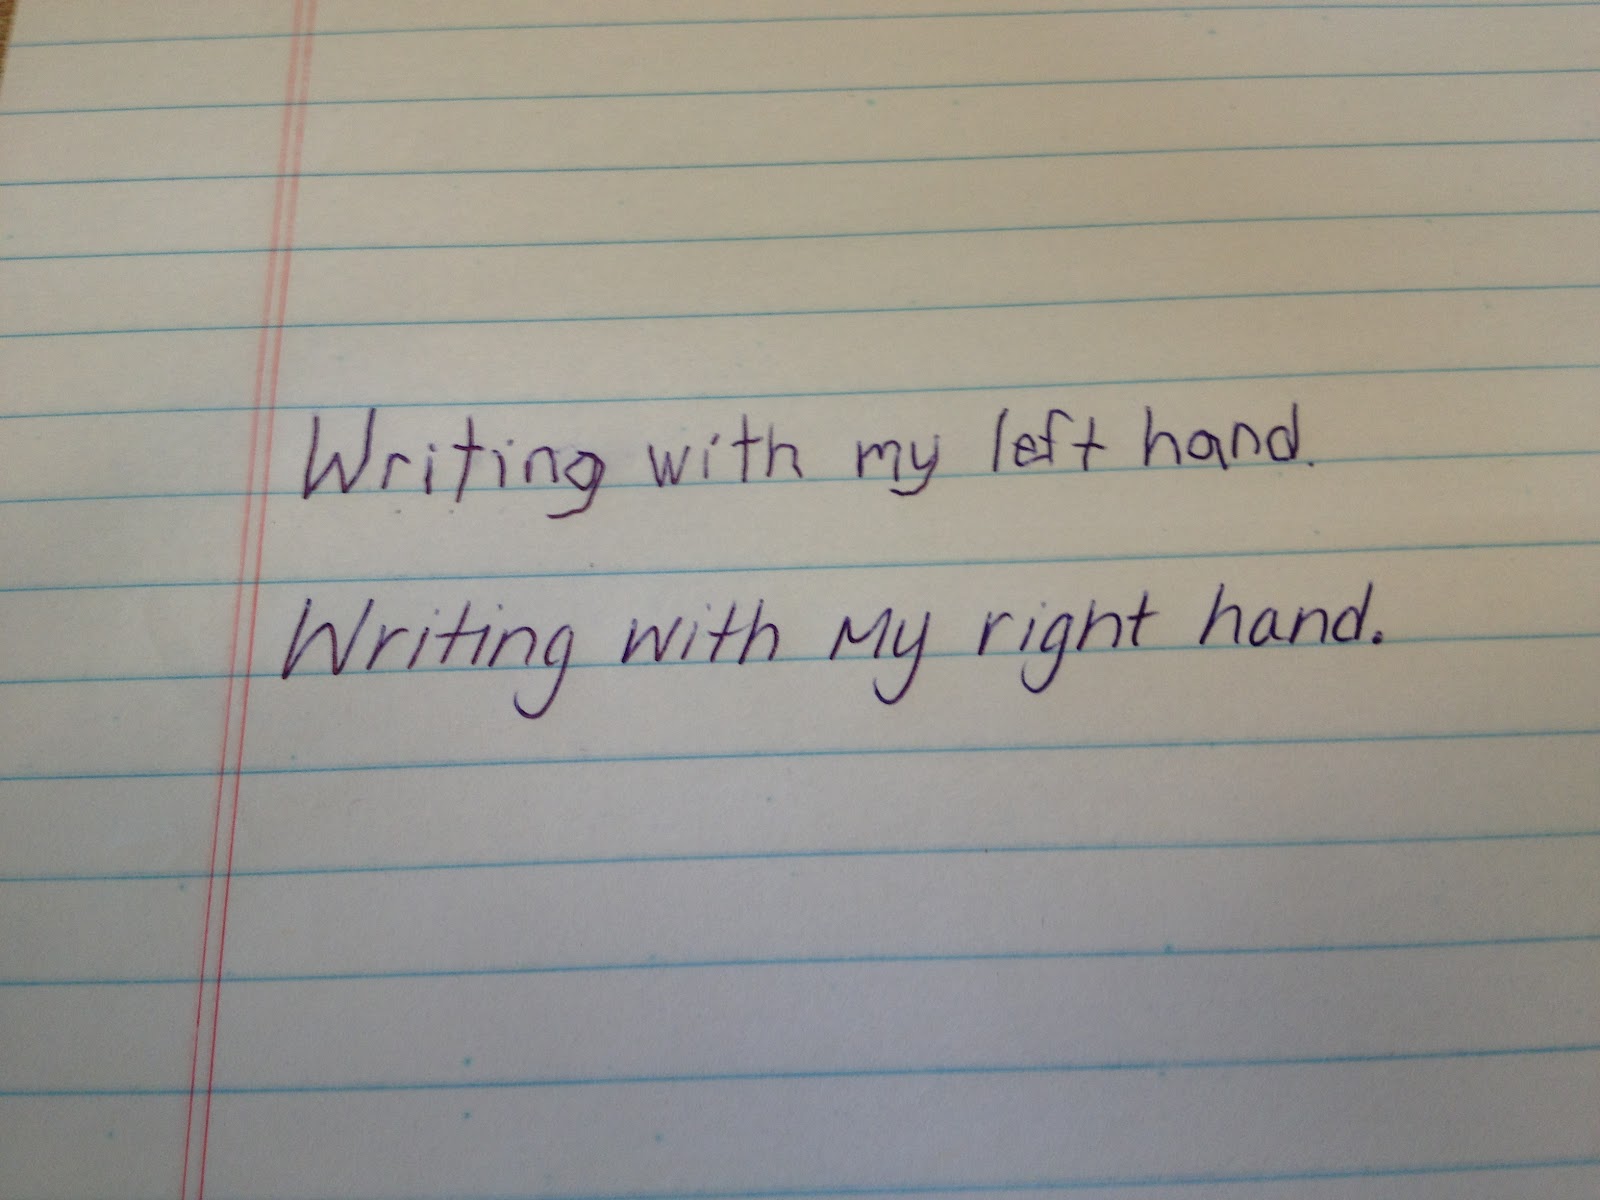 Writing with my left hand.
Writing with My right hand.